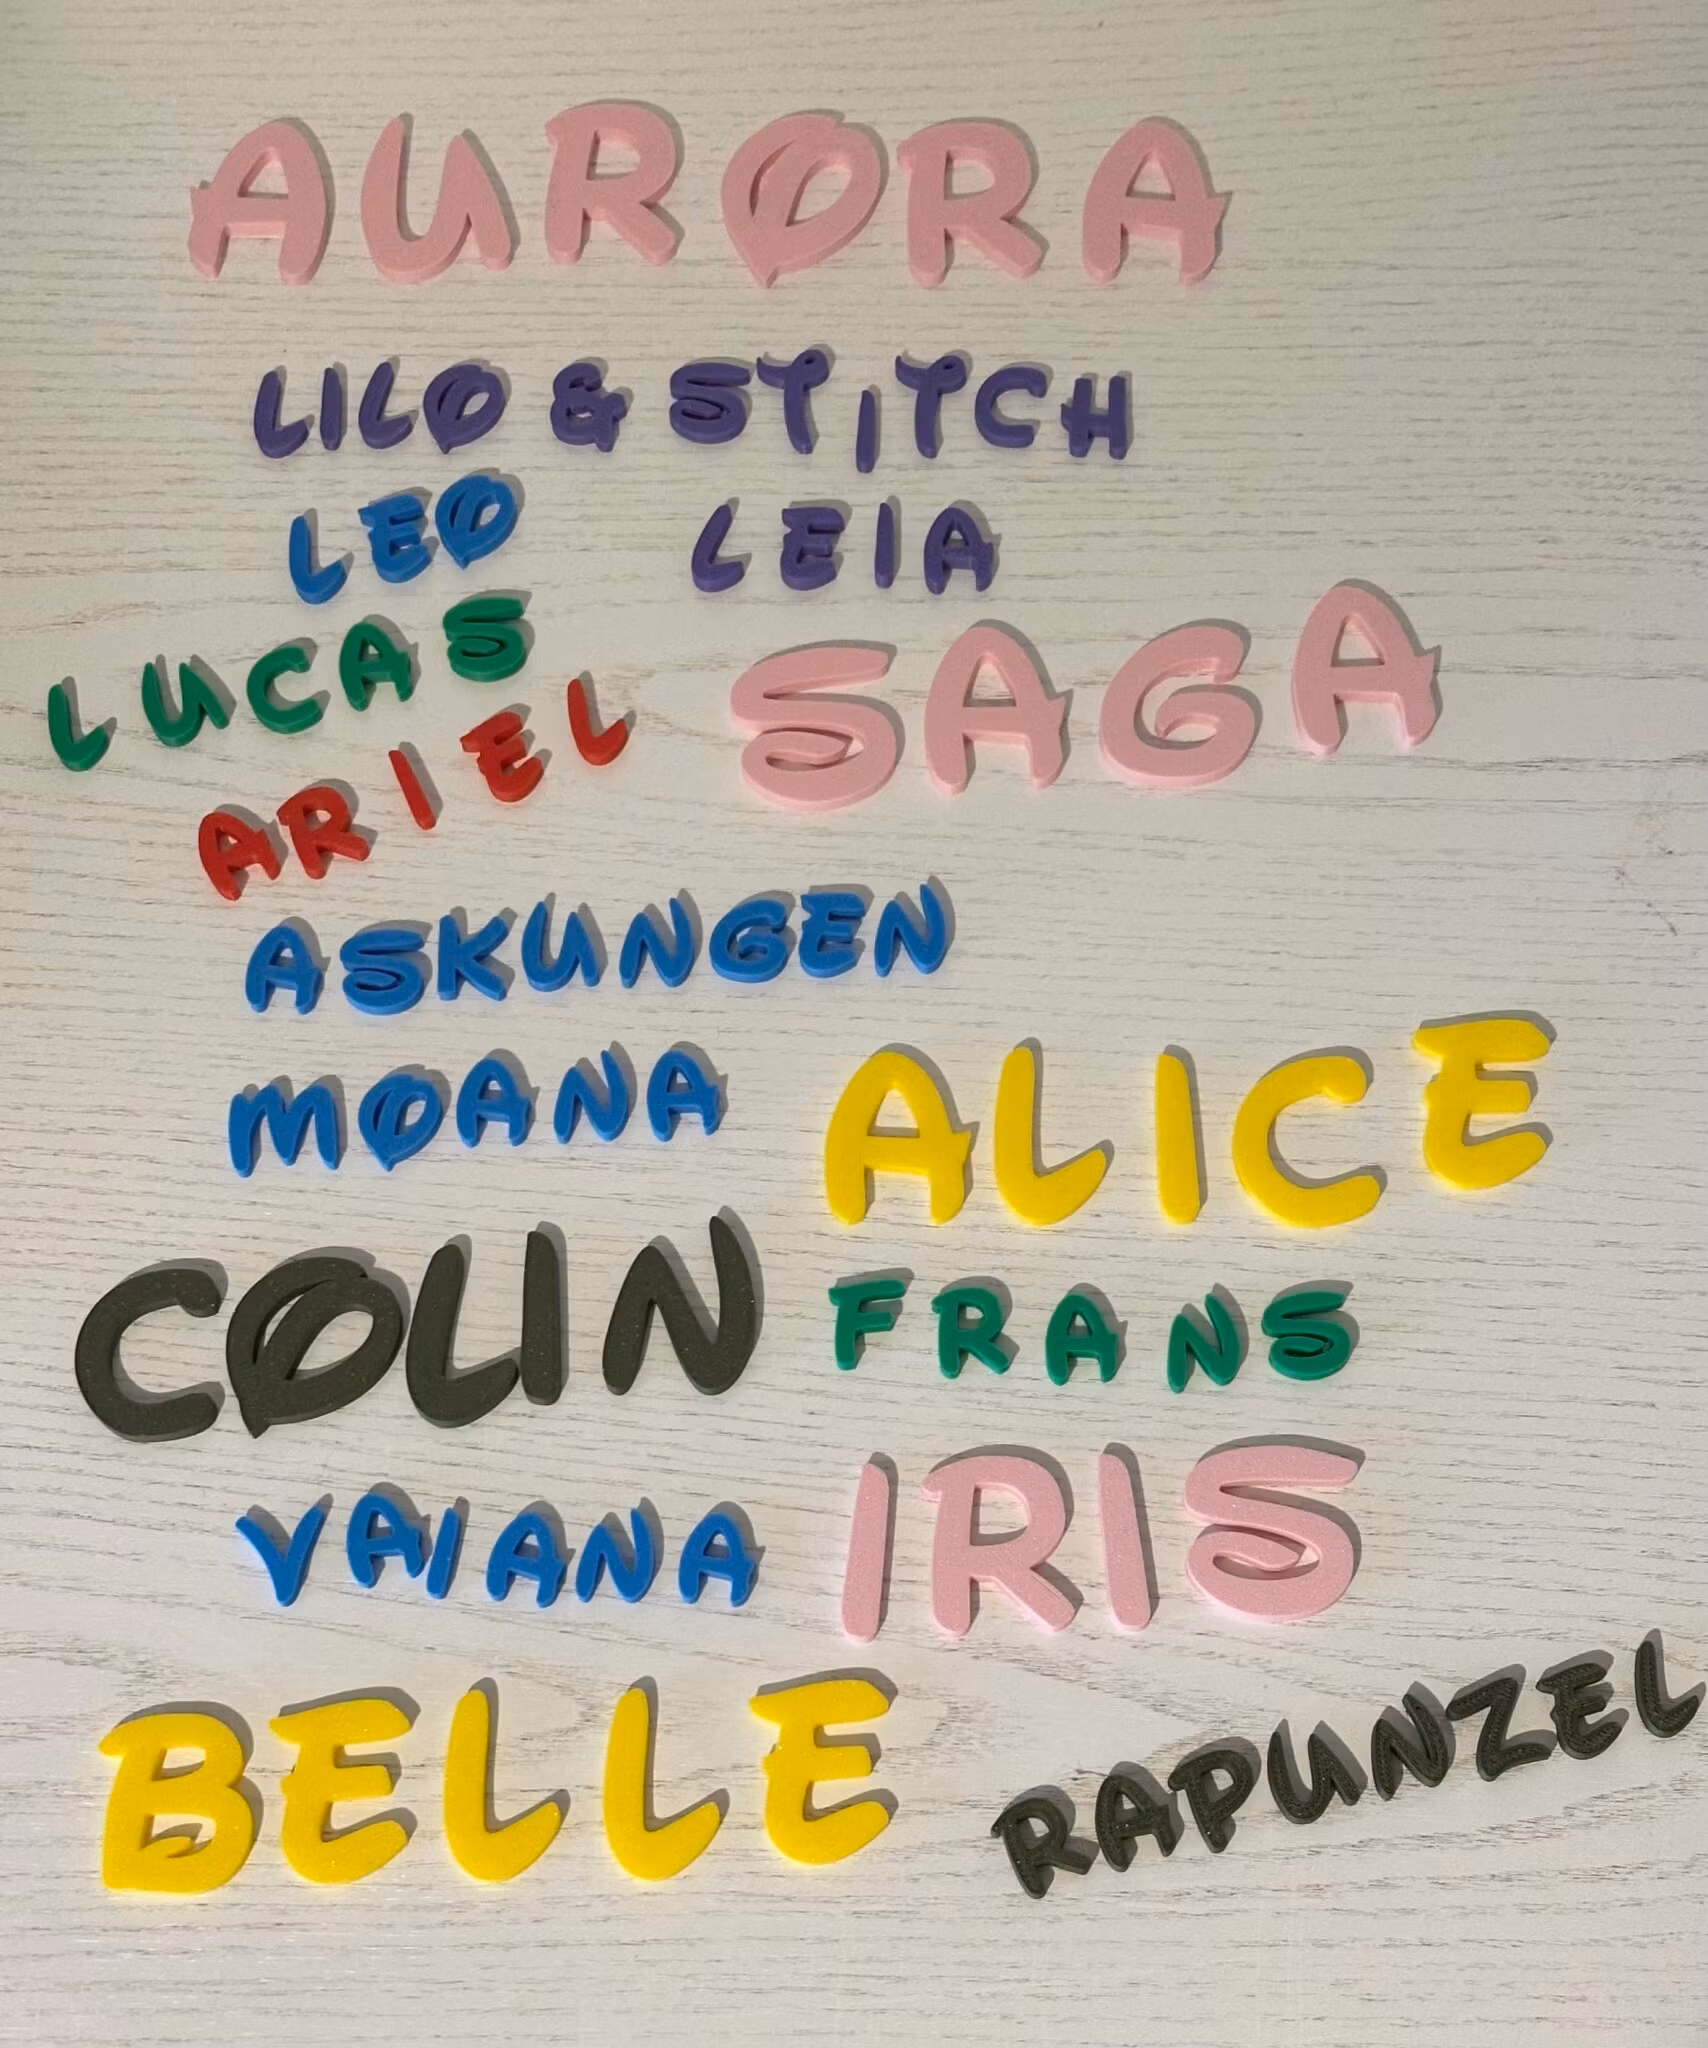 AURORA
LILO & STITCH
LEO
LEIA
LUCAS
SAGA
ARIEL
ASKUNGEN
MOANA
ALICE
COLIN
FRANS
VAIANA
IRIS
BELLE
RAPUNZEL